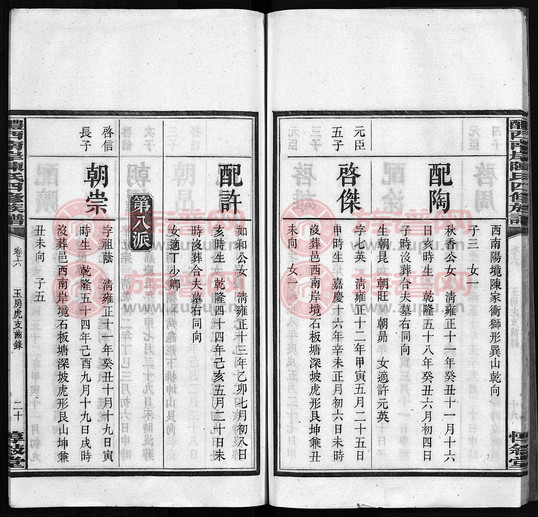 醴西南岸陳氏四修族譜
西南陽境陳家衝獅形巽山乾向
子三 女一
配陶
秋香公女 清雍正十一年癸丑十一月十六
日亥時生 乾隆五十八年癸丑六月初四日
子時沒葬合夫墓右同向
生朝昆 朝旺 朝勗 女適許元英
元臣
五子
啓傑
字七英 清雍正十二年甲寅五月二十五日
申時生 嘉慶十六年辛未正月初六日未時
沒葬邑西南岸境石板塘深坡虎形艮坤兼丑
未向 女一
配許
如和公女 清雍正十三年乙卯七月初八日
亥時生 乾隆四十四年己亥五月二十日未
時沒葬合夫墓右同向
女適丁少卿
第八派
啓信
長子
朝崇
字祖蔭 清雍正十年十月十九日寅
時生 乾隆五十四年己酉九月十九日戌時
沒葬邑西南岸境石板塘深坡虎形艮山坤兼
丑未向 子五
醴西南岸陳氏四修族譜
卷六
玉房虎支齒錄
二十
惇敘堂